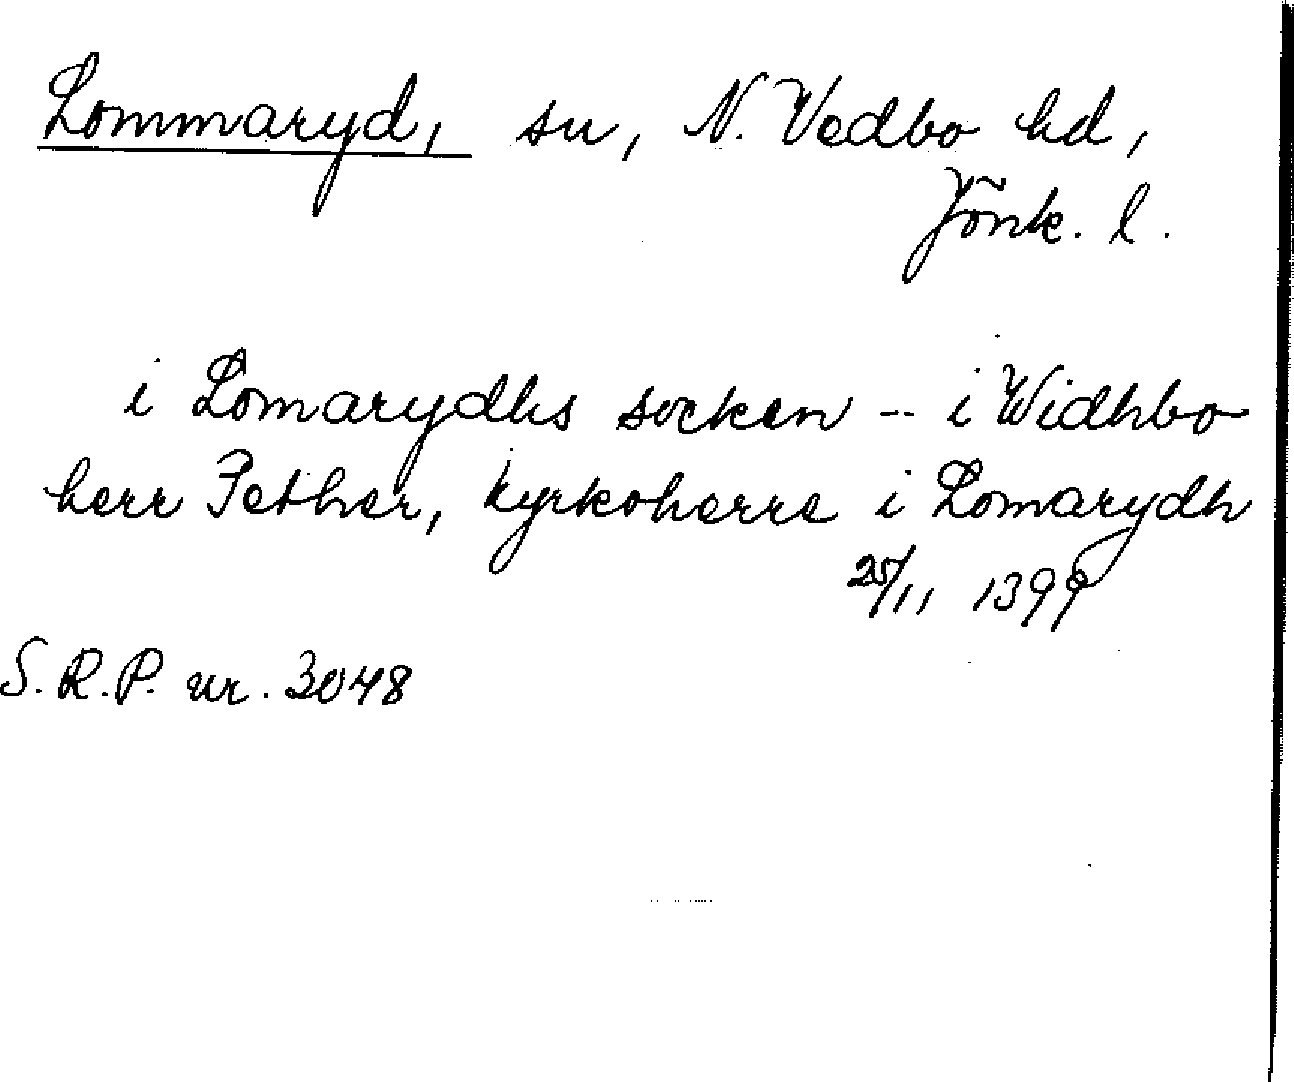 Lommaryd, sn, N. Vedbo hd,
Jönk. l.
i Lomarydhs socken -- i Widhbo
herr Pether, kyrkoherre i Lomarydh
25/11 1399
S.R.P. nr. 3048